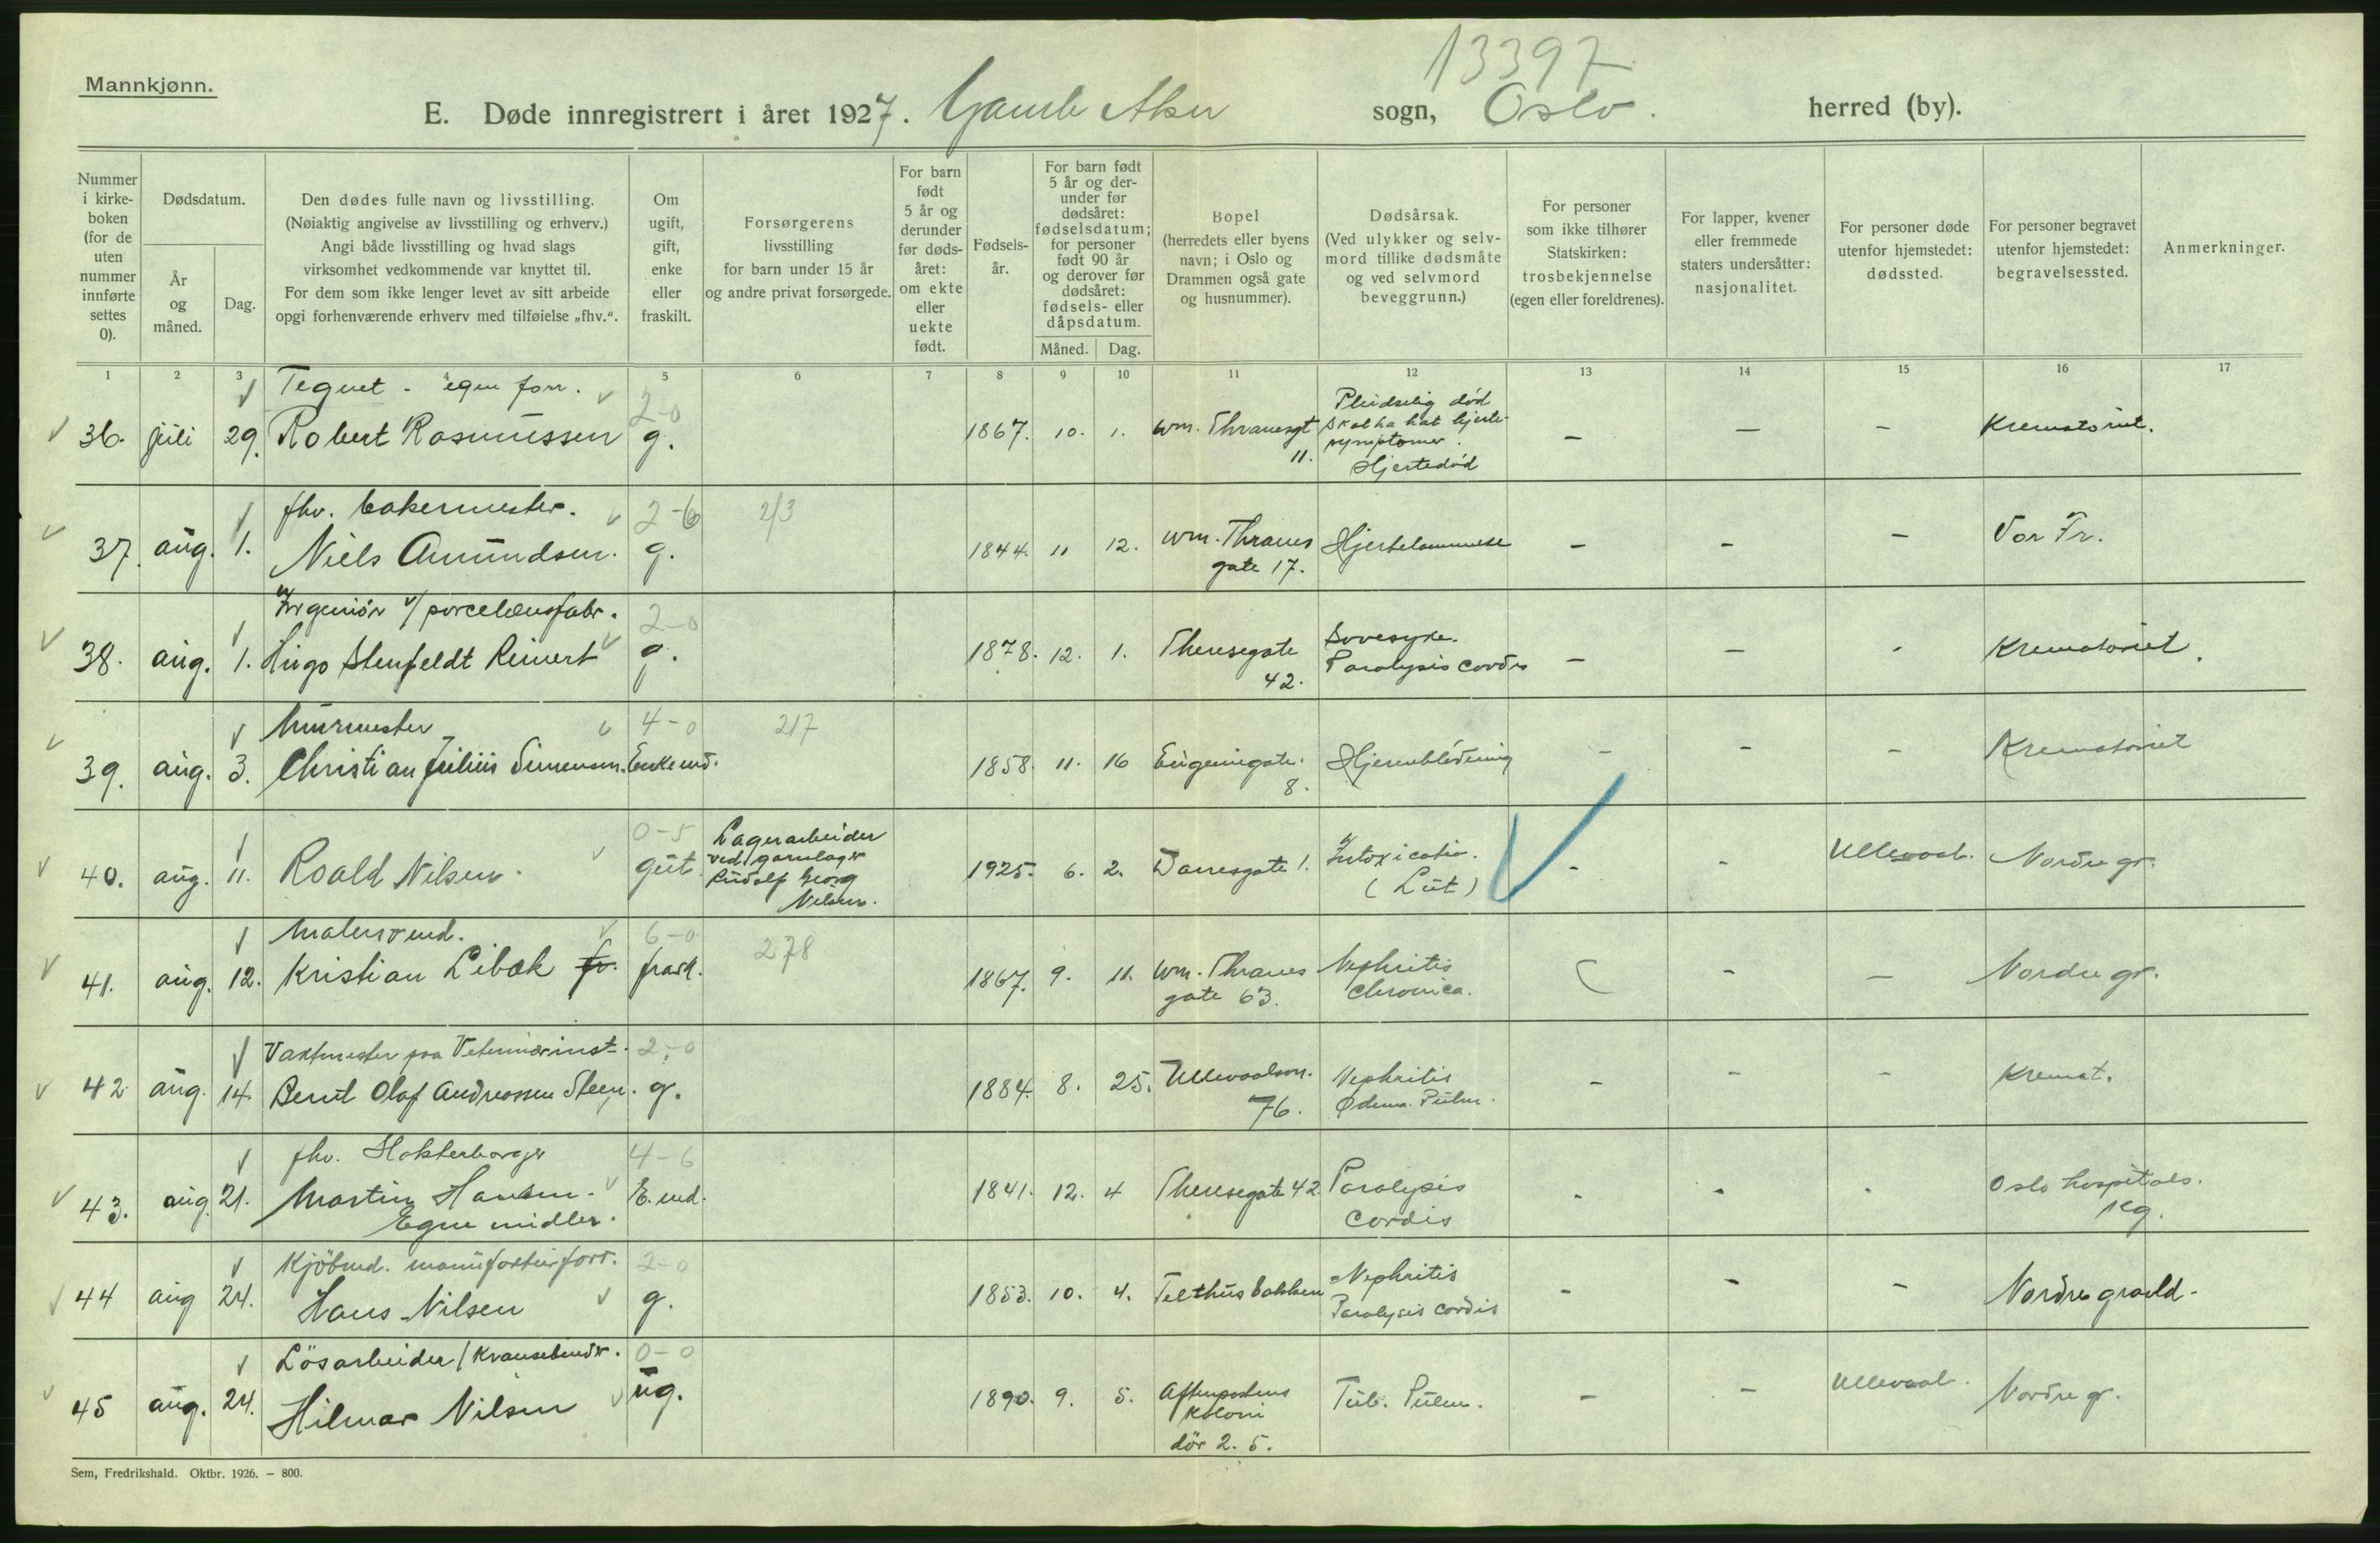 13397
Mannkjønn.
E. Døde innregistrert i året 1927. Gamle Aker sogn, Oslo. herred (by).
Nummer i kirke-boken (for de uten nummer innførte settes 0).
Dødsdatum.
År og måned.
Dag.
Den dødes fulle navn og livsstilling.
(Nøiaktig angivelse av livsstilling og erhverv.)
Angi både livsstilling og hvad slags
virksomhet vedkommende var knyttet til.
For dem som ikke lenger levet av sitt arbeide
opgi forhenværende erhverv med tilføielse „fhv.“.
Om ugift, gift, enke eller fraskilt.
Forsørgerens
livsstilling
for barn under 15 år
og andre privat forsørgede.
For barn født 5 år og derunder før døds-året: om ekte eller uekte født.
Fødsels-år.
For barn født 5 år og der-under før dødsåret: fødselsdatum; for personer født 90 år og derover før dødsåret: fødsels- eller dåpsdatum.
Måned. Dag.
Bopel
(herredets eller byens
navn; i Oslo og
Drammen også gate
og husnummer).
Dødsårsak.
(Ved ulykker og selv-
mord tillike dødsmåte
og ved selvmord
beveggrunn.)
For personer
som ikke tilhører
Statskirken:
trosbekjennelse
(egen eller foreldrenes).
For lapper, kvener
eller fremmede
staters undersåtter:
nasjonalitet.
For personer døde
utenfor hjemstedet:
dødssted.
For personer begravet
utenfor hjemstedet:
begravelsessted.
Anmerkninger.
1 2 3 4 5 6 7 8 9 10 11 12 13 14 15 16 17
Tegnet - egen forr. 2-0
36. juli 29. Robert Rasmussen g. 1867. 10. 1. Wm. Thranesgt 11. Pludselig død Skal ha hat hjerte-symptomer. Hjertedød - - - Krematoriet.
fhv. bakermester. 2-6 2/3
37. aug. 1. Niels Amundsen. g. 1844. 11 12. Wm. Thranes gate 17. Hjertelammelse - - - Vor Fr.
Ingeniør v/ porcelænsfabr. 2-0
38. aug. 1. Hugo Stenfeldt Reinert g. 1878. 12. 1. Theresegate 42. Sovesyke. Paralysis cordis - - - Krematoriet.
Murmester 4-0 217
39. aug. 3. Christian Julius Simensen. Enkemd. 1858. 11. 16 Eugeniegate. 8. Hjerneblødning - - - Krematoriet
0-5
40. aug. 11. Roald Nilsen. gut. Lagerarbeider ved garnlager Rudolf Georg Nilsen. 1925. 6. 2. Darresgate 1. Intoxicatio. (Lut) - - Ullevaal. Nordre gr.
Malersvend. 6-0 278
41. aug. 12. Kristian Libæk fr. frask. 1867. 9. 11. Wm. Thranes gate 63. Nephritis chronica. - - Nordre gr.
Vaktmester paa Veterinærinst. 2-0
42 aug. 14. Bernt Olaf Andreassen Steen. g. 1884. 8. 25. Ullevoalsvn. 76. Nephritis Ødema Pulm. - - - Kremat.
fhv. Hokkerborger 4-6
43. aug. 21. Martin Hansen. E.md. 1841. 12. 4 Theresegate 42. Paralysis cordis - - - Oslo hospitals. kg.
Egne midler.
Kjöbmd. manufakturforr. 2-0
44 aug 24. Hans Nilsen g. 1853. 10. 4. Telthusbakken Nephritis Paralysis cordis - - - Nordre gravld.
Lösarbeider / Kransebinder. 0-0
45 aug. 24. Hilmar Nilsen ug. 1890. 9. 5. Aftenpostens Koloni dör 2. 5. Tub. Pulm. - - Ullevaal. Nordre gr.
Sem, Fredrikshald. Oktbr. 1926. – 800.